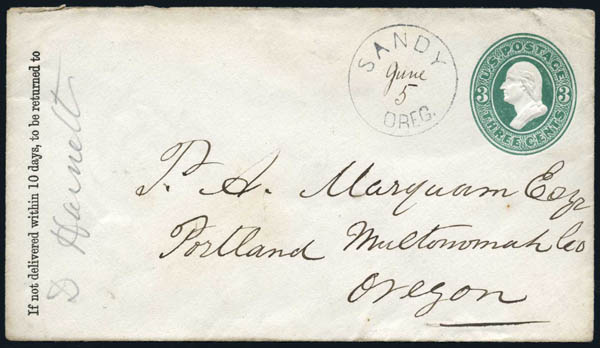 If not delivered within 10 days, to be returned to
D Harnett
SANDY
June
5
OREG.
U.S. POSTAGE
3 3
THREE CENTS
P. A. Marquam Esqr
Portland Multonomah Co
Oregon